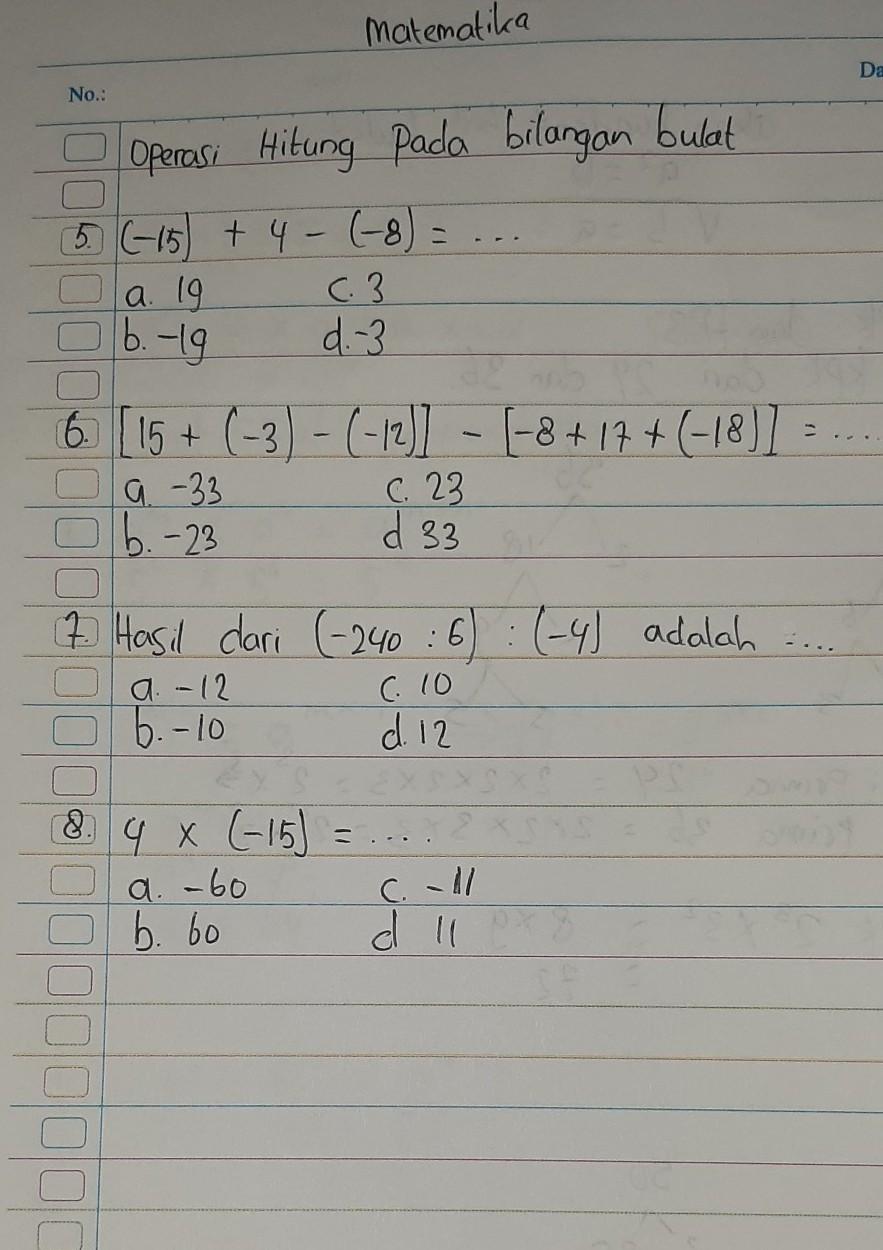 Matematika
Da
No.:
Operasi Hitung Pada bilangan bulat
5. (-15) + 4 - (-8) = ...
a. 19 c. 3
b. -19 d. -3
6. [15 + (-3) - (-12)] - [-8 + 17 + (-18)] = ....
a. -33 c. 23
b. -23 d 33
7. Hasil dari (-240 : 6) : (-4) adalah ....
a. -12 c. 10
b. -10 d. 12
8. 4 x (-15) = ....
a. -60 c. -11
b. 60 d 11